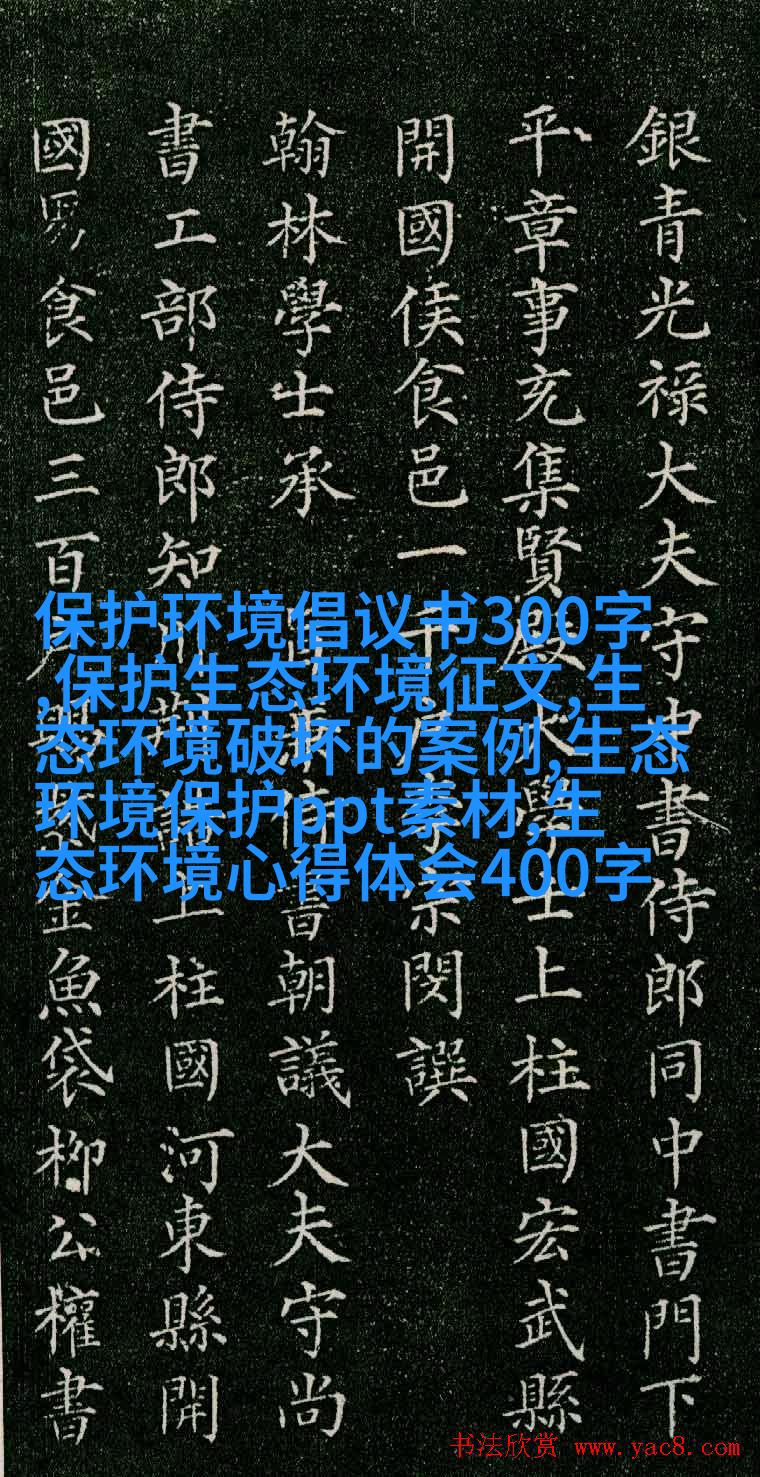 銀青光禄大夫守中書侍郎同中書門下
平章事充集賢殿大學士上柱國宏武縣
開國侯食邑一千户宗閔撰
翰林學士承 侍書朝議大夫守尚
書工部侍郎知制誥上柱國河東縣開
國男食邑三百户賜紫金魚袋柳公權書
保护环境倡议书300字
,保护生态环境征文,生
态环境破坏的案例,生态
环境保护ppt素材,生
态环境心得体会400字
书法欣赏 www.yac8.com